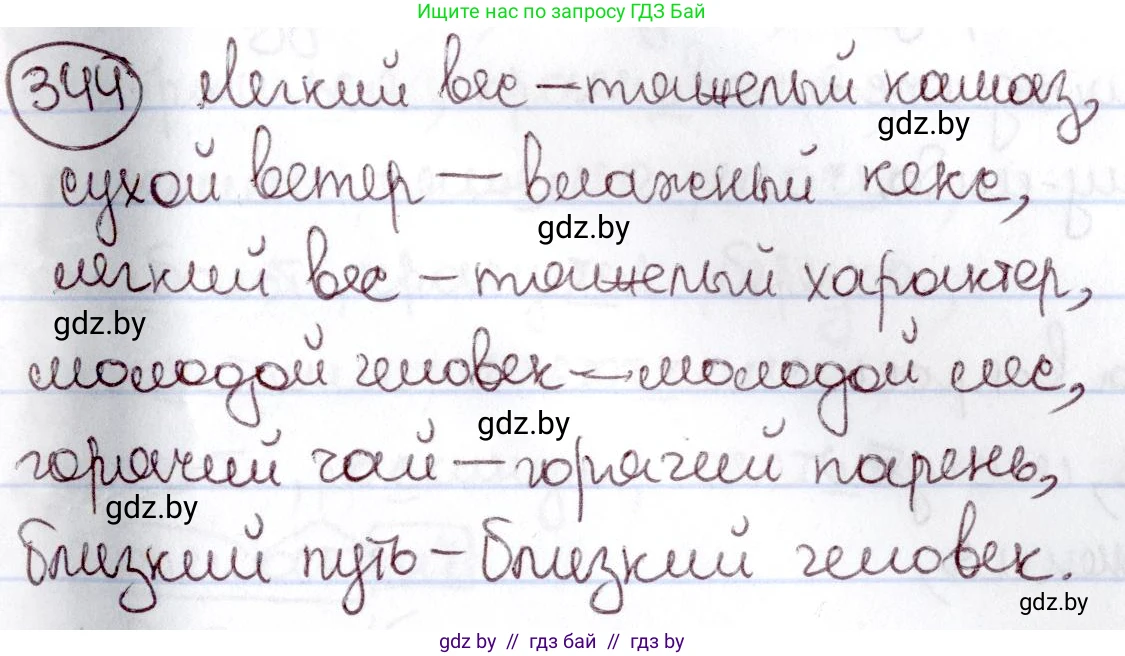 Ищите нас по запросу ГДЗ Бай
344 Легкий вес – тяжелый камаз,
gdz.by
сухой ветер – влажный кекс,
gdz.by
легкий вес – тяжелый характер,
gdz.by
молодой человек – молодой лес,
gdz.by
горячий чай – горячий парень,
gdz.by
близкий путь – близкий человек.
gdz.by
gdz by // гдз бай // гдз by